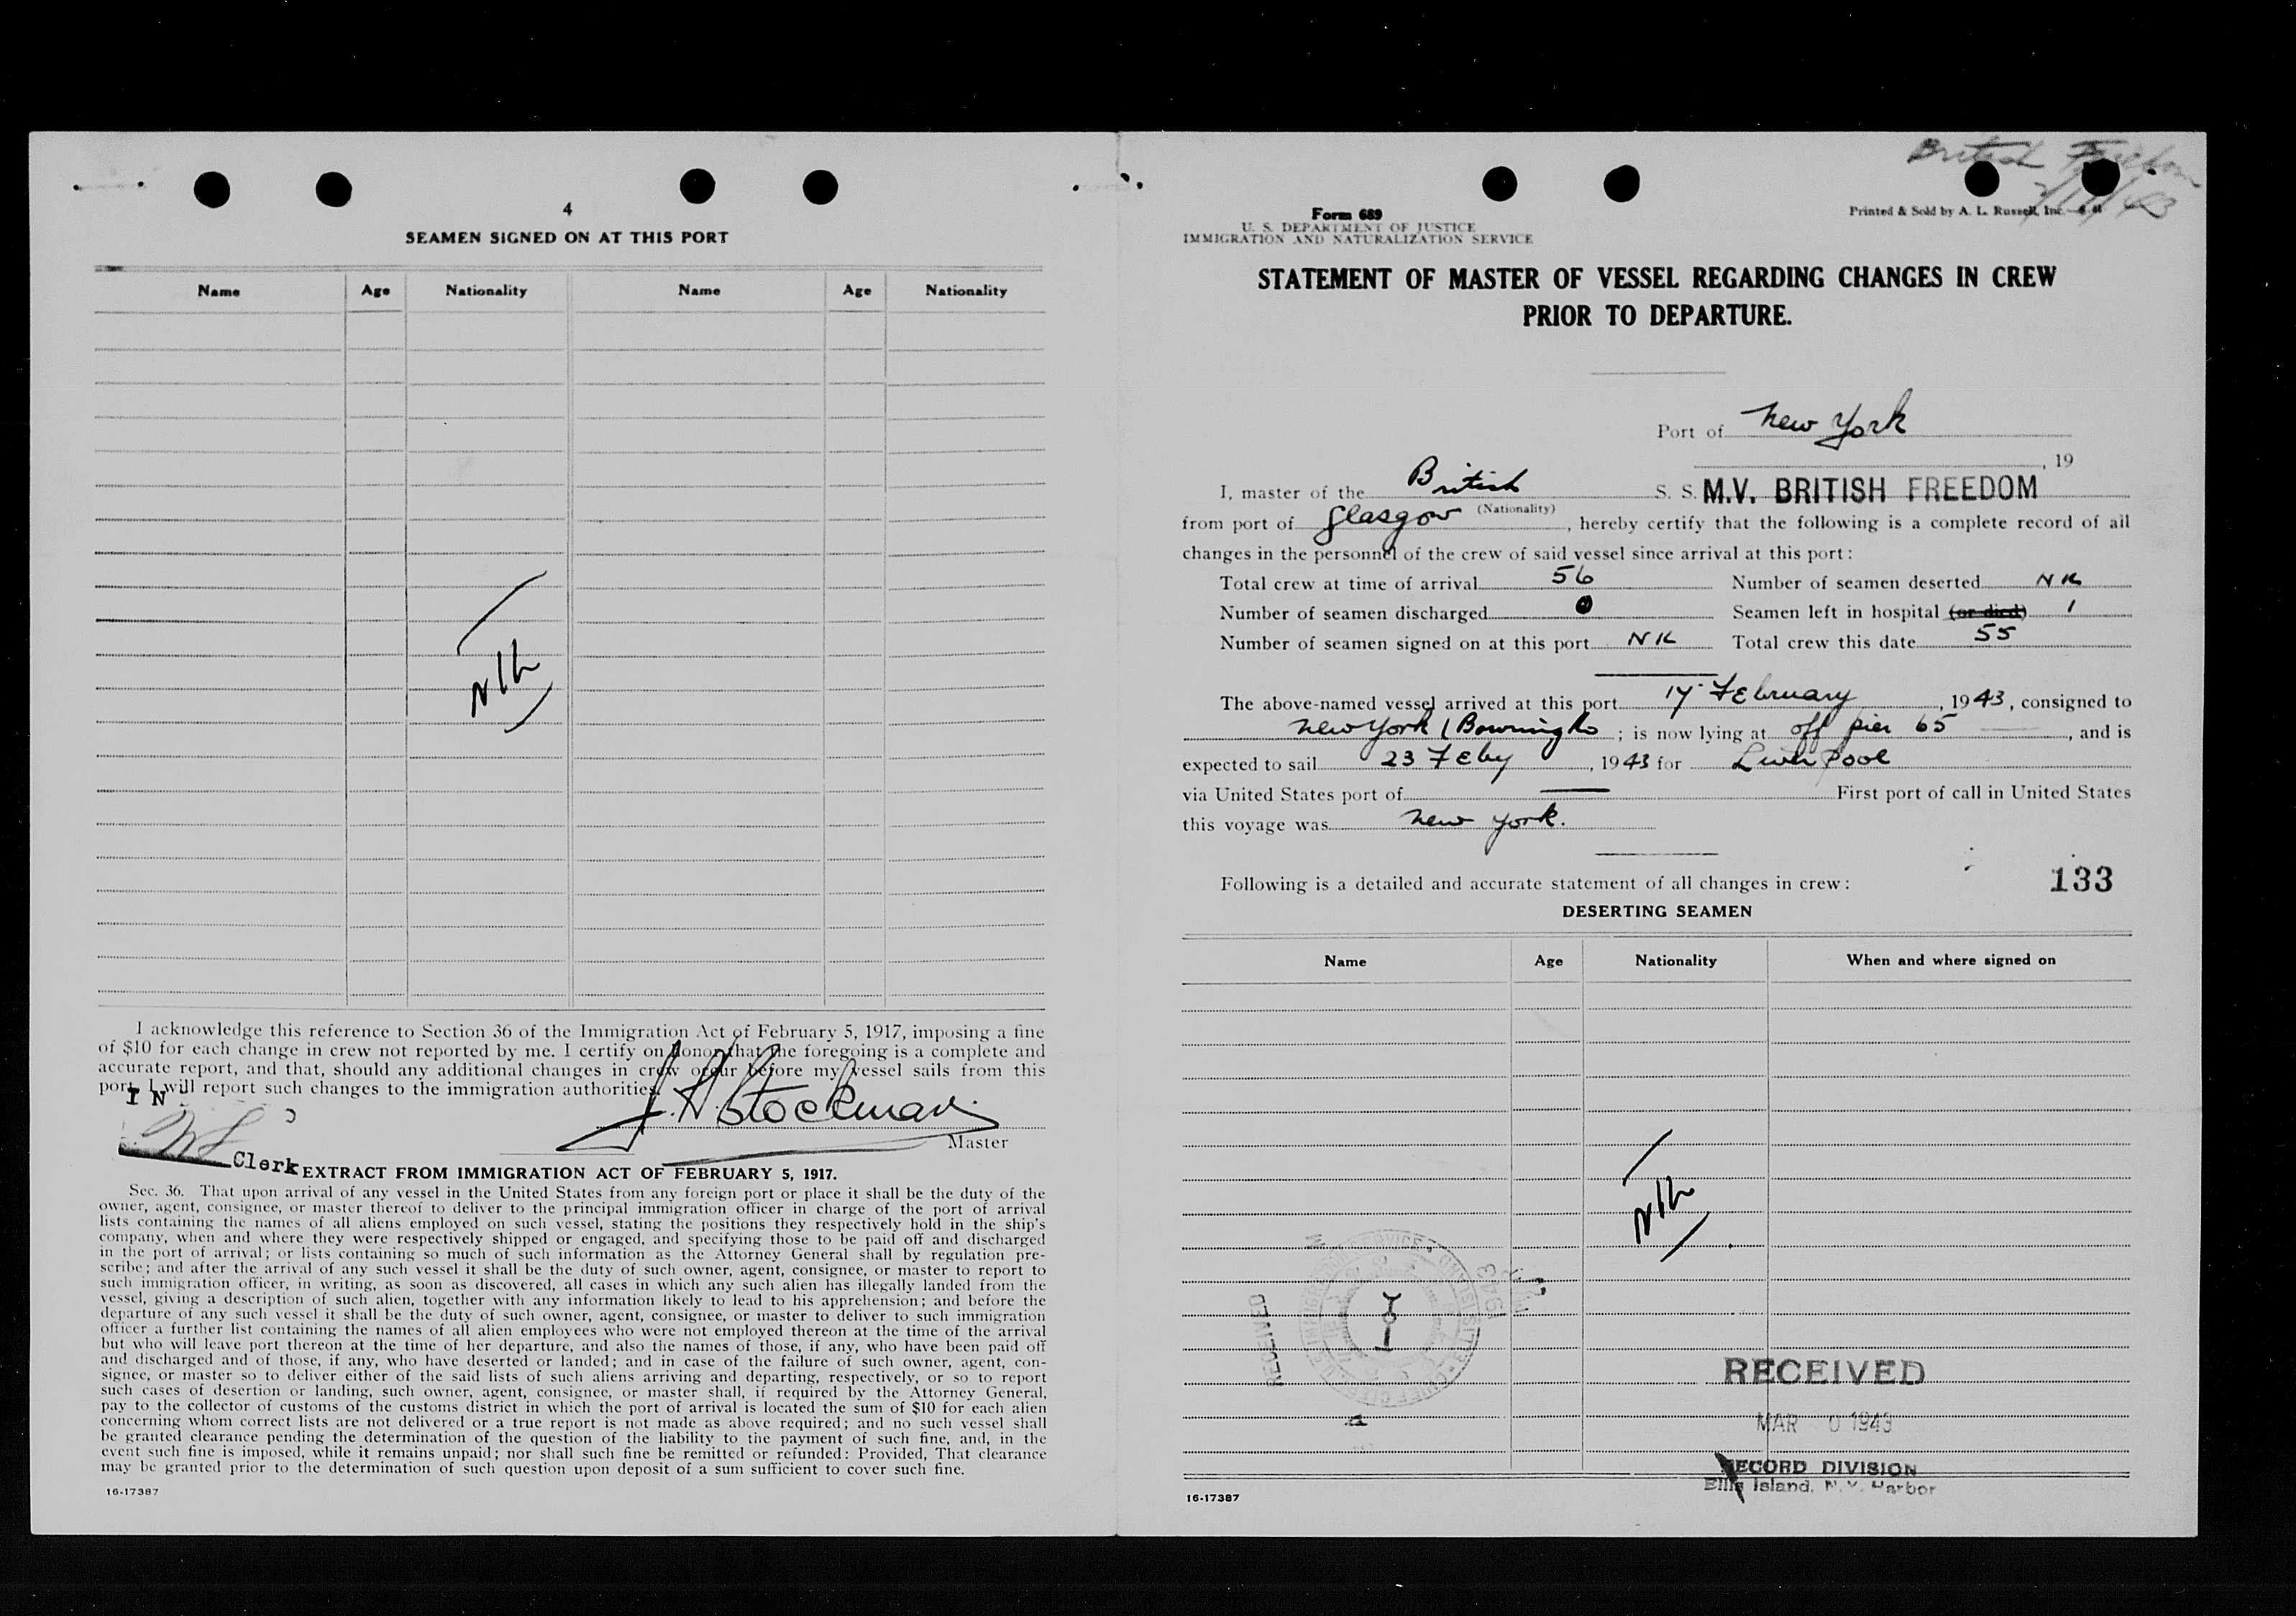 4
SEAMEN SIGNED ON AT THIS PORT
Name Age Nationality Name Age Nationality
Nil
I acknowledge this reference to Section 36 of the Immigration Act of February 5, 1917, imposing a fine
of $10 for each change in crew not reported by me. I certify on honor that the foregoing is a complete and
accurate report, and that, should any additional changes in crew occur before my vessel sails from this
port, I will report such changes to the immigration authorities.
I N
J. H. Stockman.
Master
Clerk
EXTRACT FROM IMMIGRATION ACT OF FEBRUARY 5, 1917.
Sec. 36. That upon arrival of any vessel in the United States from any foreign port or place it shall be the duty of the
owner, agent, consignee, or master thereof to deliver to the principal immigration officer in charge of the port of arrival
lists containing the names of all aliens employed on such vessel, stating the positions they respectively hold in the ship's
company, when and where they were respectively shipped or engaged, and specifying those to be paid off and discharged
in the port of arrival; or lists containing so much of such information as the Attorney General shall by regulation pre-
scribe; and after the arrival of any such vessel it shall be the duty of such owner, agent, consignee, or master to report to
such immigration officer, in writing, as soon as discovered, all cases in which any such alien has illegally landed from the
vessel, giving a description of such alien, together with any information likely to lead to his apprehension; and before the
departure of any such vessel it shall be the duty of such owner, agent, consignee, or master to deliver to such immigration
officer a further list containing the names of all alien employees who were not employed thereon at the time of the arrival
but who will leave port thereon at the time of her departure, and also the names of those, if any, who have been paid off
and discharged and of those, if any, who have deserted or landed; and in case of the failure of such owner, agent, con-
signee, or master so to deliver either of the said lists of such aliens arriving and departing, respectively, or so to report
such cases of desertion or landing, such owner, agent, consignee, or master shall, if required by the Attorney General,
pay to the collector of customs of the customs district in which the port of arrival is located the sum of $10 for each alien
concerning whom correct lists are not delivered or a true report is not made as above required; and no such vessel shall
be granted clearance pending the determination of the question of the liability to the payment of such fine, and, in the
event such fine is imposed, while it remains unpaid; nor shall such fine be remitted or refunded: Provided, That clearance
may be granted prior to the determination of such question upon deposit of a sum sufficient to cover such fine.
16-17387
British Freedom
Form 689
U. S. DEPARTMENT OF JUSTICE
IMMIGRATION AND NATURALIZATION SERVICE
Printed & Sold by A. L. Russell, Inc.
STATEMENT OF MASTER OF VESSEL REGARDING CHANGES IN CREW
PRIOR TO DEPARTURE.
Port of New York
, 19
I, master of the British S. S. M.V. BRITISH FREEDOM
(Nationality)
from port of Glasgow, hereby certify that the following is a complete record of all
changes in the personnel of the crew of said vessel since arrival at this port:
Total crew at time of arrival 56 Number of seamen deserted Nil
Number of seamen discharged 0 Seamen left in hospital (or died) 1
Number of seamen signed on at this port Nil Total crew this date 55
The above-named vessel arrived at this port 17 February, 1943, consigned to
New York (Bowring & Co; is now lying at off pier 65, and is
expected to sail 23 Feby, 1943 for Liverpool
via United States port of — First port of call in United States
this voyage was New York.
Following is a detailed and accurate statement of all changes in crew: 133
DESERTING SEAMEN
Name Age Nationality When and where signed on
Nil
RECEIVED
1943
RECEIVED
MAR 1943
RECORD DIVISION
Ellis Island, N. Y. Harbor
16-17387